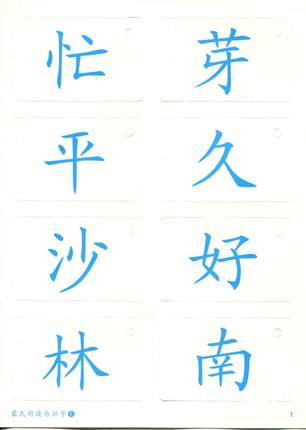 忙 芽
平 久
沙 好
林 南
蒙氏阅读与识字 1